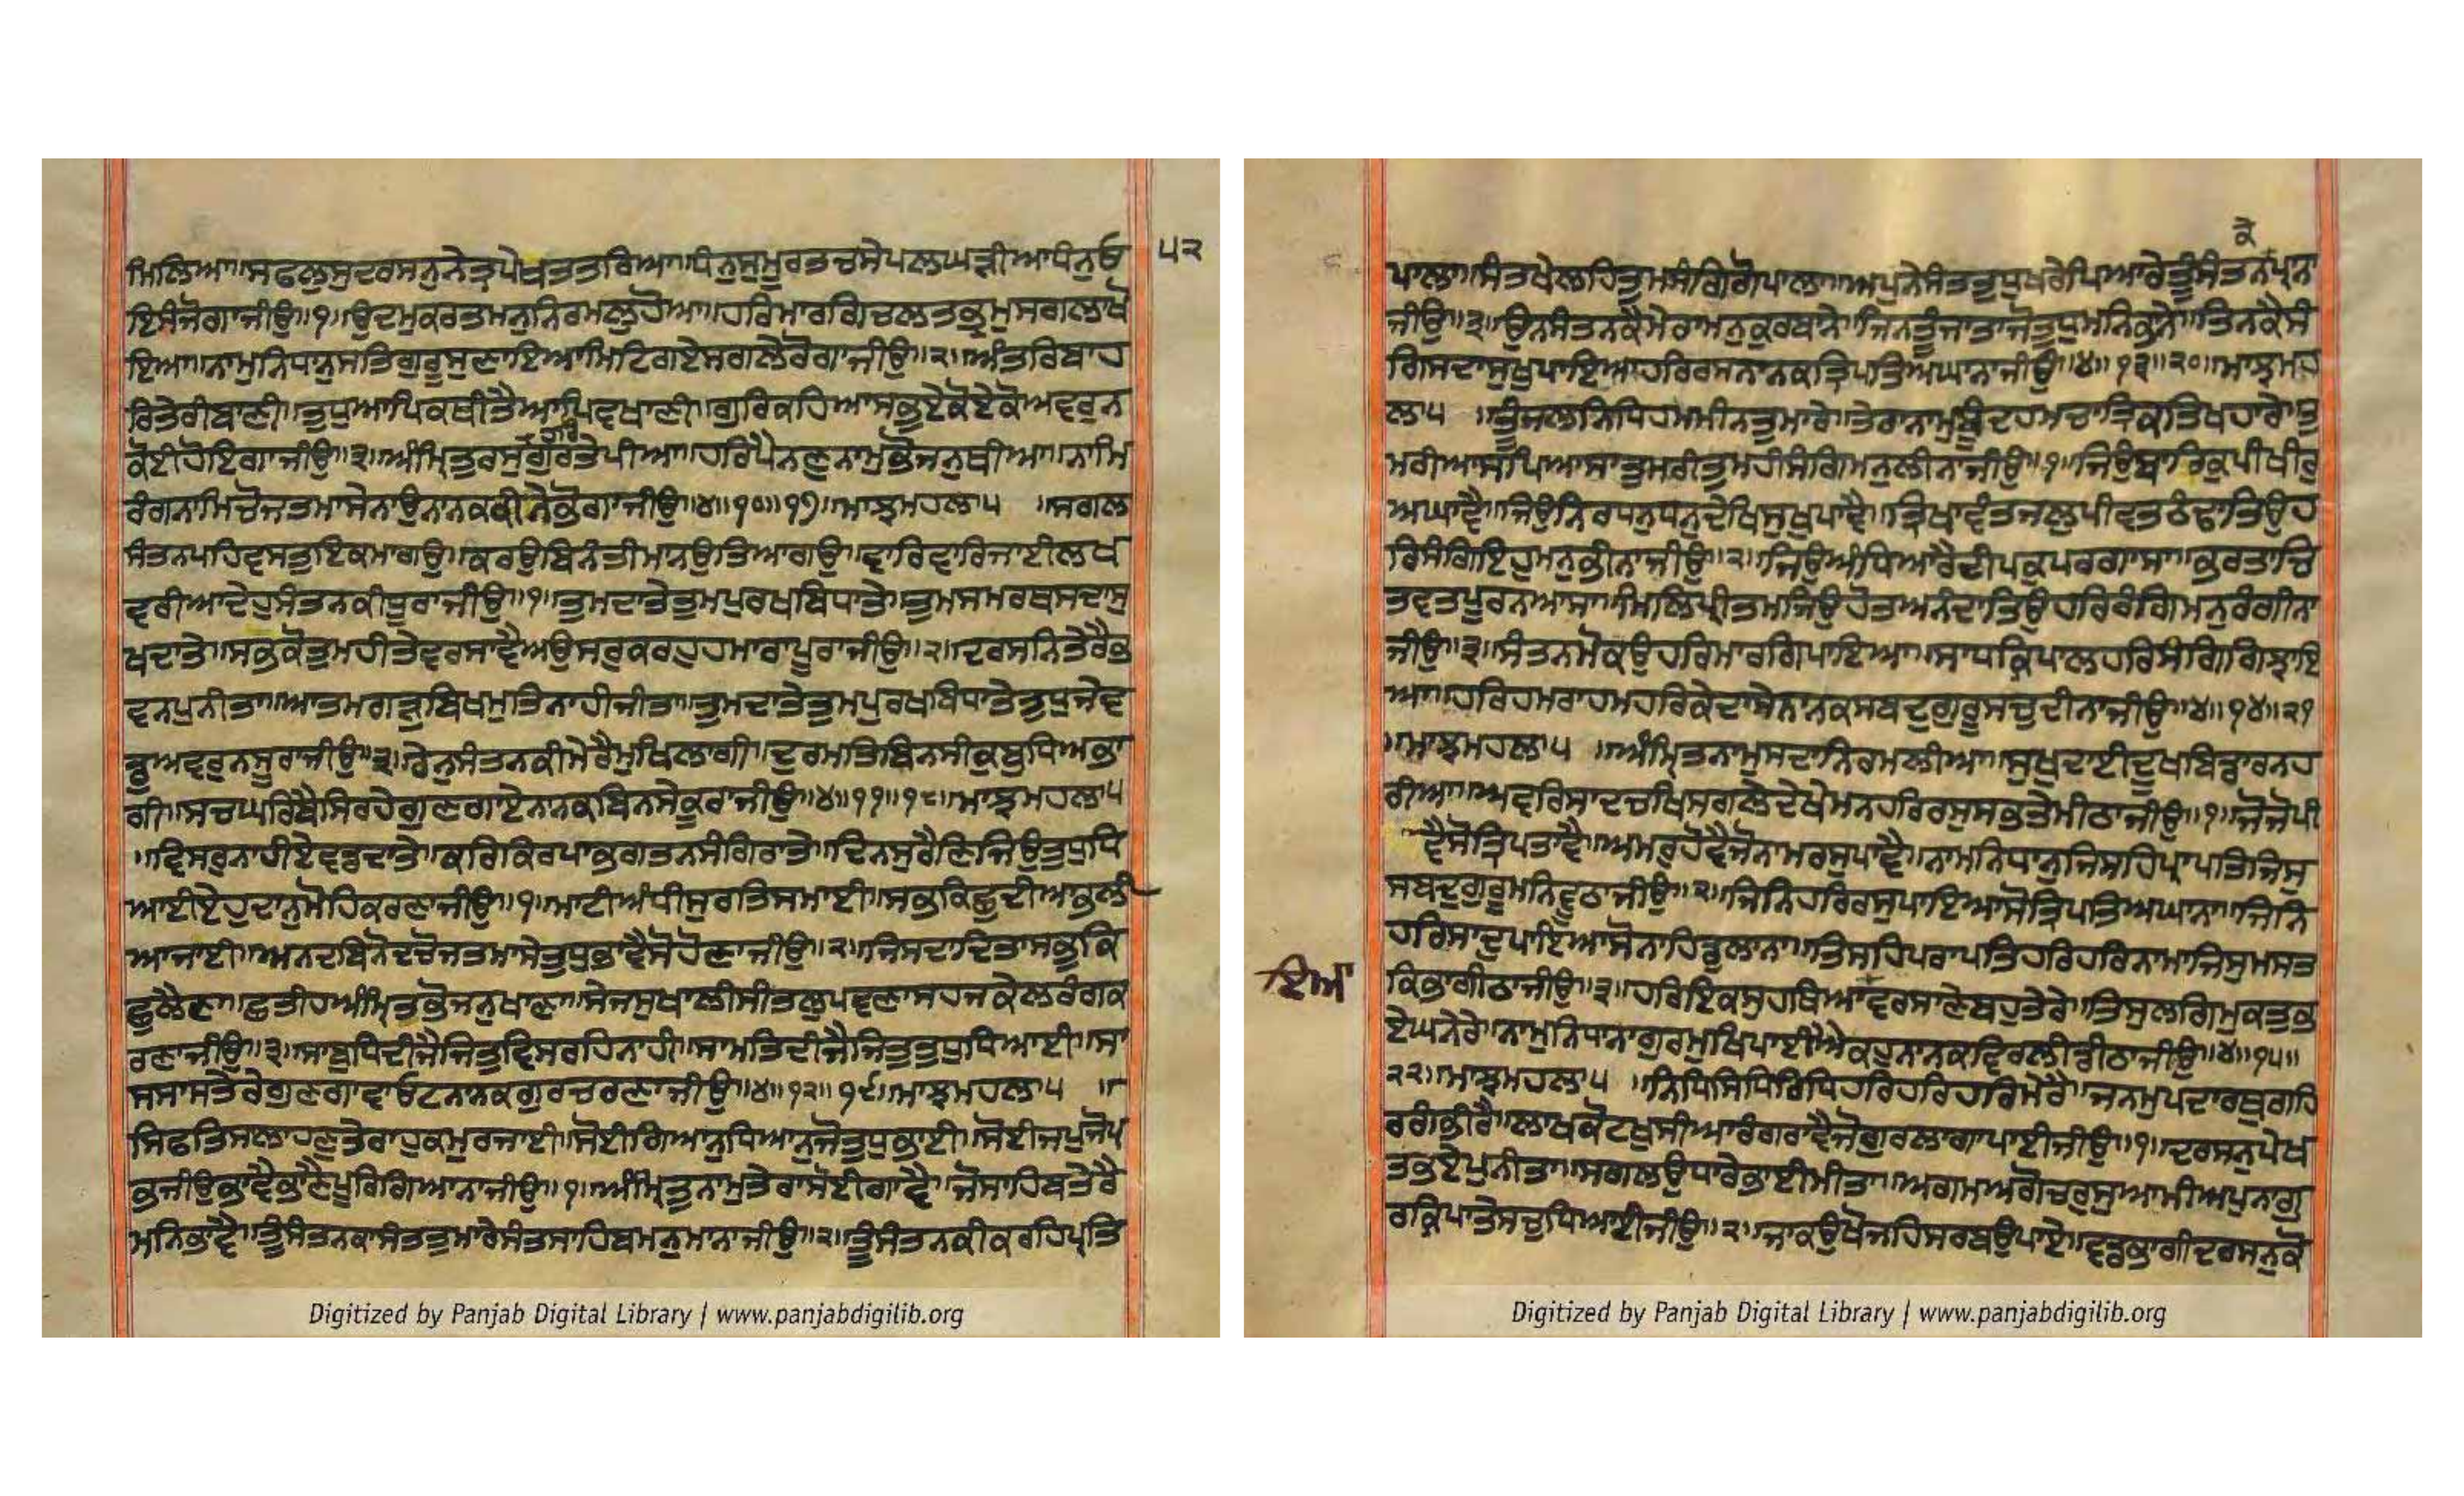 ਮਿਲਿਆ॥ਸਫਲੁਸੁਦਰਸਨੁਨੇਤ੍ਰਪੇਖਤਤਰਿਆ॥ਧੰਨੁਸੁਮੂਰਤਚਸੇਪਲਘੜੀਆਧੰਨੁਓ
੫੨
ਇਸੰਜੋਗਾਜੀਉ॥੧॥ਉਦਮੁਕਰਤਮਨੁਨਿਰਮਲੁਹੋਆ॥ਹਰਿਮਾਰਗਿਚਲਤਭ੍ਰਮੁਸਗਲਾਖੋ
ਇਆ॥ਨਾਮੁਨਿਧਾਨੁਸਤਿਗੁਰੂਸੁਣਾਇਆਮਿਟਿਗਏਸਗਲੇਰੋਗਾਜੀਉ॥੨॥ਅੰਤਰਿਬਾਹ
ਰਿਤੇਰੀਬਾਣੀ॥ਤੁਧੁਆਪਿਕਥੀਤੈਆਪਿਵਖਾਣੀ॥ਗੁਰਿਕਹਿਆਸਭੁਏਕੋਏਕੋਅਵਰੁਨ
ਕੋਈਹੋਇਗਾਜੀਉ॥੩॥ਅੰਮ੍ਰਿਤਰਸੁਗੁਰਤੇਪੀਆ॥ਹਰਿਪੈਨਣੁਨਾਮੁਭੋਜਨੁਥੀਆ॥ਨਾਮਿ
ਰੰਗਨਾਮਿਚੋਜਤਮਾਸੇਨਾਉਨਾਨਕਕੀਨੇਭੋਗਾਜੀਉ॥੪॥੧੦॥੧੭॥ਮਾਝਮਹਲਾ੫ ॥ਸਗਲ
ਸੰਤਨਪਹਿਵਸਤੁਇਕਮਾਂਗਉ॥ਕਰਉਬਿਨੰਤੀਮਾਨੁਤਿਆਗਉ॥ਵਾਰਿਵਾਰਿਜਾਈਲਖ
ਵਰੀਆਦੇਹੁਸੰਤਨਕੀਧੂਰਾਜੀਉ॥੧॥ਤੁਮਦਾਤੇਤੁਮਪੁਰਖਬਿਧਾਤੇ॥ਤੁਮਸਮਰਥਸਦਾਸੁ
ਖਦਾਤੇ॥ਸਭਕੋਤੁਮਹੀਤੇਵਰਸਾਵੈਅਉਸਰੁਕਰਹੁਹਮਾਰਾਪੂਰਾਜੀਉ॥੨॥ਦਰਸਨਿਤੇਰੈਭ
ਵਨਪੁਨੀਤਾ॥ਆਤਮਗੜੁਬਿਖਮੁਤਿਨਾਹੀਜੀਤਾ॥ਤੁਮਦਾਤੇਤੁਮਪੁਰਖਬਿਧਾਤੇਤੁਧੁਜੇਵ
ਡੁਅਵਰੁਨਸੂਰਾਜੀਉ॥੩॥ਰੇਨੁਸੰਤਨਕੀਮੇਰੈਮੁਖਿਲਾਗੀ॥ਦੁਰਮਤਿਬਿਨਸੀਕੁਬੁਧਿਅਭਾ
ਗੀ॥ਸਚਘਰਿਬੈਸਿਰਹੇਗੁਣਗਾਏਨਾਨਕਬਿਨਸੇਕੂਰਾਜੀਉ॥੪॥੧੧॥੧੮॥ਮਾਝਮਹਲਾ੫
॥ਵਿਸਰੁਨਾਹੀਏਵਡਦਾਤੇ॥ਕਰਿਕਿਰਪਾਭਗਤਨਸੰਗਿਰਾਤੇ॥ਦਿਨਸੁਰੈਣਿਜਿਉਤੁਧੁਧਿ
ਆਈਏਹੁਦਾਨੁਮੋਹਿਕਰਣਾਜੀਉ॥੧॥ਮਾਟੀਅੰਧੀਸੁਰਤਿਸਮਾਈ॥ਸਭਕਿਛੁਦੀਆਭਲੀ
ਆਜਾਈ॥ਅਨਦਬਿਨੋਦਚੋਜਤਮਾਸੇਤੁਧੁਭਾਵੈਸੋਹੋਣਾਜੀਉ॥੨॥ਜਿਸਦਾਦਿਤਾਸਭੁਕਿ
ਛੁਲੈਣਾ॥ਛਤੀਹਅੰਮ੍ਰਿਤਭੋਜਨੁਖਾਣਾ॥ਸੇਜਸੁਖਾਲੀਸੀਤਲੁਪਵਣਾਸਹਜਕੇਲਰੰਗਕ
ਰਣਾਜੀਉ॥੩॥ਸਾਬੁਧਿਦੀਜੈਜਿਤੁਵਿਸਰਹਿਨਾਹੀ॥ਸਾਮਤਿਦੀਜੈਜਿਤੁਤੁਧੁਧਿਆਈ॥ਸਾ
ਸਸਾਸਤੇਰੇਗੁਣਗਾਵਾਓਟਨਾਨਕਗੁਰਚਰਣਾਜੀਉ॥੪॥੧੨॥੧੯॥ਮਾਝਮਹਲਾ੫ ॥
ਸਿਫਤਿਸਲਾਹਣੁਤੇਰਾਹੁਕਮੁਰਜਾਈ॥ਸੋਈਗਿਆਨੁਧਿਆਨੁਜੋਤੁਧੁਭਾਈ॥ਸੋਈਜਪੁਜੋਪ੍ਰ
ਭਜੀਉਭਾਵੈਭਾਣੈਪੂਰਿਗਿਆਨਾਜੀਉ॥੧॥ਅੰਮ੍ਰਿਤੁਨਾਮੁਤੇਰਾਸੋਈਗਾਵੈ॥ਜੋਸਾਹਿਬਤੇਰੈ
ਮਨਿਭਾਵੈ॥ਤੂੰਸੰਤਨਕਾਸੰਤਤੁਮਾਰੇਸੰਤਸਾਹਿਬਮਨੁਮਾਨਾਜੀਉ॥੨॥ਤੂੰਸੰਤਨਕੀਕਰਹਿਪ੍ਰਤਿ
Digitized by Panjab Digital Library | www.panjabdigilib.org
ਪਾਲਾ॥ਸੰਤਖੇਲਹਿਤੁਮਸੰਗਿਗੋਪਾਲਾ॥ਅਪੁਨੇਸੰਤਤੁਧੁਖਰੇਪਿਆਰੇਤੂੰਸੰਤਨਪ੍ਰਾਨਾ
ਕੇ
ਜੀਉ॥੩॥ਉਨਸੰਤਨਕੈਮੇਰਾਮਨੁਕੁਰਬਾਨੇ॥ਜਿਨਤੂੰਜਾਤਾਜੋਤੁਧੁਮਨਿਭਾਨੇ॥ਤਿਨਕੈਸੰ
ਗਿਸਦਾਸੁਖੁਪਾਇਆਹਰਿਰਸਨਾਨਕਤ੍ਰਿਪਤਿਅਘਾਨਾਜੀਉ॥੪॥੧੩॥੨੦॥ਮਾਝਮਹ
ਲਾ੫ ॥ਤੂੰਜਲਨਿਧਿਹਮਮੀਨਤੁਮਾਰੇ॥ਤੇਰਾਨਾਮੁਬੂੰਦਹਮਚਾਤ੍ਰਿਕਤਿਖਹਾਰੇ॥ਤੁ
ਮਰੀਆਸਪਿਆਸਾਤੁਮਰੀਤੁਮਹੀਸੰਗਿਮਨੁਲੀਨਾਜੀਉ॥੧॥ਜਿਉਬਾਰਿਕੁਪੀਖੀਰੁ
ਅਘਾਵੈ॥ਜਿਉਨਿਰਧਨੁਧਨੁਦੇਖਿਸੁਖੁਪਾਵੈ॥ਤ੍ਰਿਖਾਵੰਤਜਲੁਪੀਵਤਠੰਢਾਤਿਉਹ
ਰਿਸੰਗਿਇਹੁਮਨੁਭੀਨਾਜੀਉ॥੨॥ਜਿਉਅੰਧਿਆਰੈਦੀਪਕੁਪਰਗਾਸਾ॥ਭਰਤਾਚਿ
ਤਵਤਪੂਰਨਆਸਾ॥ਮਿਲਿਪ੍ਰੀਤਮਜਿਉਹੋਤਅਨੰਦਾਤਿਉਹਰਿਰੰਗਿਮਨੁਰੰਗੀਨਾ
ਜੀਉ॥੩॥ਸੰਤਨਮੋਕਉਹਰਿਮਾਰਗਿਪਾਇਆ॥ਸਾਧਕ੍ਰਿਪਾਲਹਰਿਸੰਗਿਗਿਝਾਇ
ਆ॥ਹਰਿਹਮਰਾਹਮਹਰਿਕੇਦਾਸੇਨਾਨਕਸਬਦੁਗੁਰੂਸਚੁਦੀਨਾਜੀਉ॥੪॥੧੪॥੨੧
॥ਮਾਝਮਹਲਾ੫ ॥ਅੰਮ੍ਰਿਤਨਾਮੁਸਦਾਨਿਰਮਲੀਆ॥ਸੁਖਦਾਈਦੂਖਬਿਡਾਰਨਹ
ਰੀਆ॥ਅਵਰਿਸਾਦਚਖਿਸਗਲੇਦੇਖੇਮਨਹਰਿਰਸੁਸਭਤੇਮੀਠਾਜੀਉ॥੧॥ਜੋਜੋਪੀ
ਵੈਸੋਤ੍ਰਿਪਤਾਵੈ॥ਅਮਰੁਹੋਵੈਜੋਨਾਮਰਸੁਪਾਵੈ॥ਨਾਮਨਿਧਾਨੁਜਿਸਹਿਪ੍ਰਾਪਤਿਜਿਸੁ
ਸਬਦੁਗੁਰੂਮਨਿਵੂਠਾਜੀਉ॥੨॥ਜਿਨਿਹਰਿਰਸੁਪਾਇਆਸੋਤ੍ਰਿਪਤਿਅਘਾਨਾ॥ਜਿਨਿ
ਹਰਿਸਾਦੁਪਾਇਆਸੋਨਾਹਿਡੁਲਾਨਾ॥ਤਿਸਹਿਪਰਾਪਤਿਹਰਿਹਰਿਨਾਮਾਜਿਸੁਮਸਤ
ਇਆ
ਕਿਭਾਗੀਠਾਜੀਉ॥੩॥ਹਰਿਇਕਸੁਹਥਿਆਵਰਸਾਣੇਬਹੁਤੇਰੇ॥ਤਿਸੁਲਗਿਮੁਕਤੁਭ
ਏਘਨੇਰੇ॥ਨਾਮੁਨਿਧਾਨਾਗੁਰਮੁਖਿਪਾਈਐਕਹੁਨਾਨਕਵਿਰਲੀਡੀਠਾਜੀਉ॥੪॥੧੫॥
੨੨॥ਮਾਝਮਹਲਾ੫ ॥ਨਿਧਿਸਿਧਿਰਿਧਿਹਰਿਹਰਿਹਰਿਮੇਰੈ॥ਜਨਮੁਪਦਾਰਥੁਗਹਿ
ਰਗੰਭੀਰੈ॥ਲਾਖਕੋਟਖੁਸੀਆਰੰਗਰਾਵੈਜੋਗੁਰਲਾਗਾਪਾਈਜੀਉ॥੧॥ਦਰਸਨੁਪੇਖ
ਤਭਏਪੁਨੀਤਾ॥ਸਗਲਉਧਾਰੇਭਾਈਮੀਤਾ॥ਅਗਮਅਗੋਚਰੁਸੁਆਮੀਅਪੁਨਾਗੁ
ਰਕ੍ਰਿਪਾਤੇਸਚੁਧਿਆਈਜੀਉ॥੨॥ਜਾਕਉਖੋਜਹਿਸਰਬਉਪਾਏ॥ਵਡਭਾਗੀਦਰਸਨੁਕੋ
Digitized by Panjab Digital Library | www.panjabdigilib.org